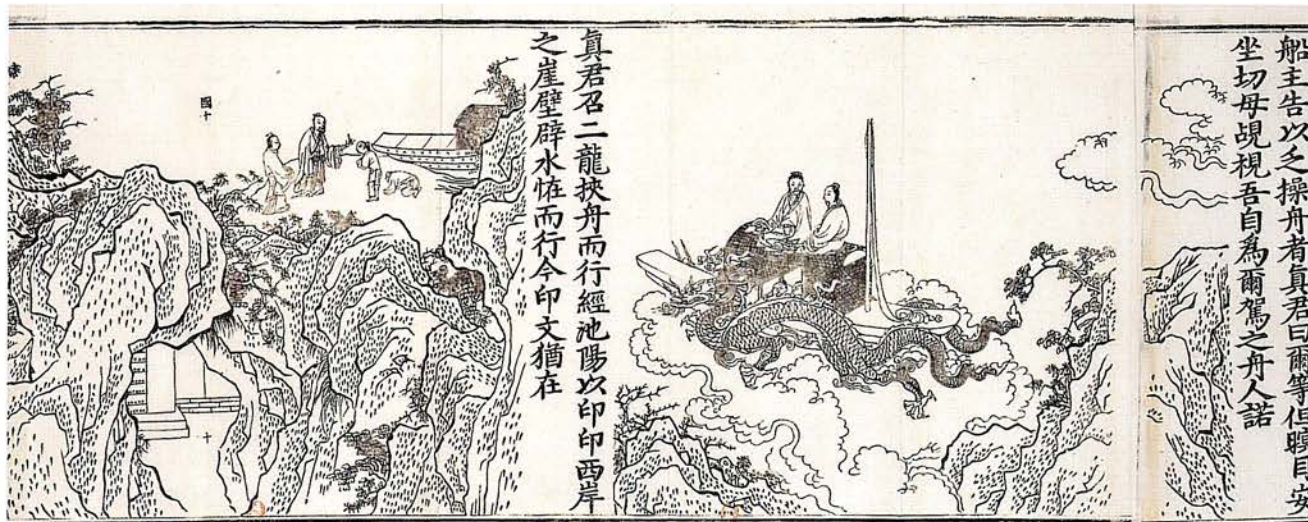 船主告以乏操舟者真君曰爾等但瞑目安
坐切母覘視吾自為爾駕之舟人諾
真君召二龍挾舟而行經池陽以印印西岸
之崖壁辟水恠而行今印文猶在
國十
十